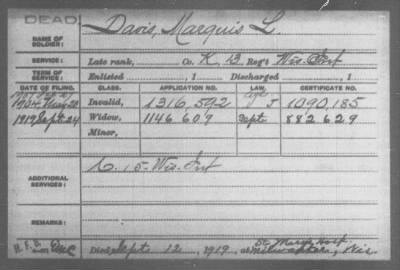 DEAD
NAME OF SOLDIER: Davis, Marquis L.
SERVICE: Late rank, Co. K, 13, Reg't Wis. Inf
TERM OF SERVICE: Enlisted , 1 Discharged , 1
DATE OF FILING. CLASS. APPLICATION NO. LAW. CERTIFICATE NO.
1904 May 28 Invalid, 1316,592 age J 1090,185
1919 Sept 24 Widow, 1146 609 Sept 882629
Minor,
ADDITIONAL SERVICES: C. 15 Wis. Inf
REMARKS:
Died Sept 12, 1919, at St Mary's Hosp. Milwaukee, Wis